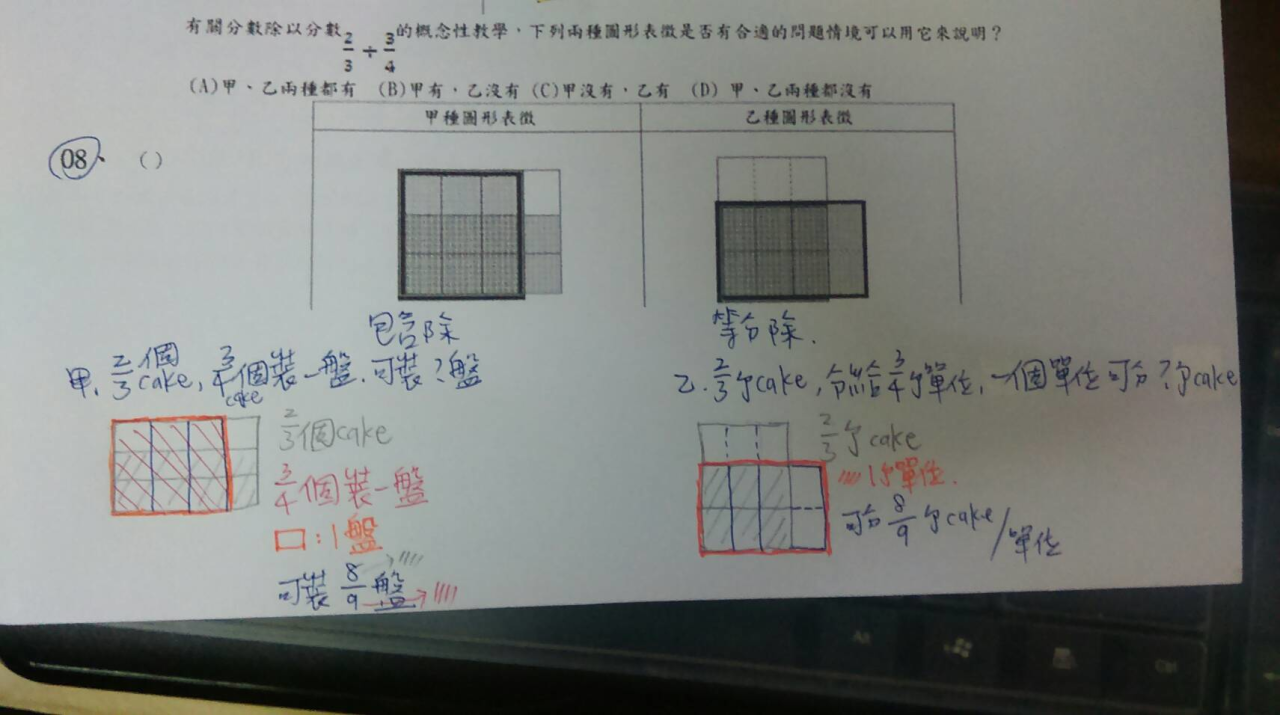 有關分數除以分數 2/3 ÷ 3/4 的概念性教學，下列兩種圖形表徵是否有合適的問題情境可以用它來說明？
(A)甲、乙兩種都有 (B)甲有，乙沒有 (C)甲沒有，乙有 (D) 甲、乙兩種都沒有
甲種圖形表徵 乙種圖形表徵
08、 ( )
包含除
等分除.
甲. 2/3個cake, 3/4個cake裝一盤.可裝?盤
乙. 2/3个cake, 分給3/4个單位, 一個單位可分?个cake
2/3個cake
3/4個裝一盤
:1盤
可裝 8/9 盤
2/3个cake
1个單位.
可分 8/9 个cake/單位
Alt
Ctrl